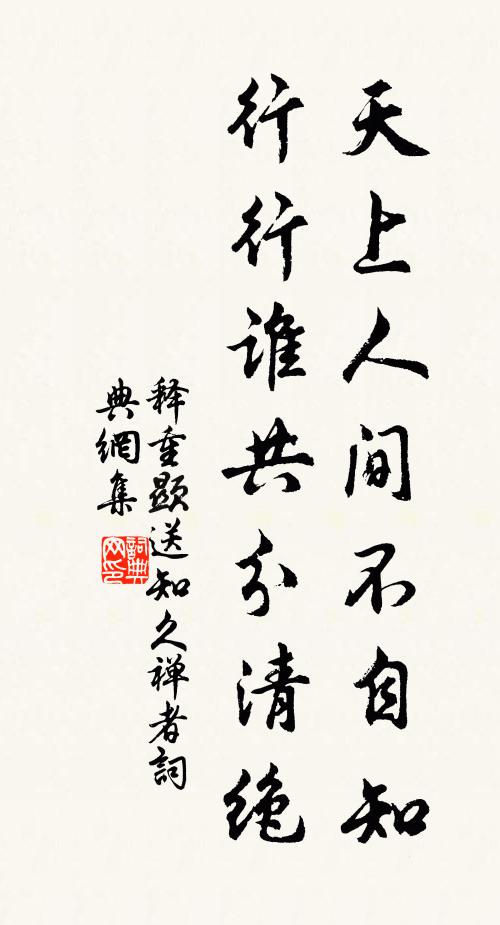 天上人间不自知
行行谁共分清绝
释重顯送知久禅者詞
典網集
詞典网印